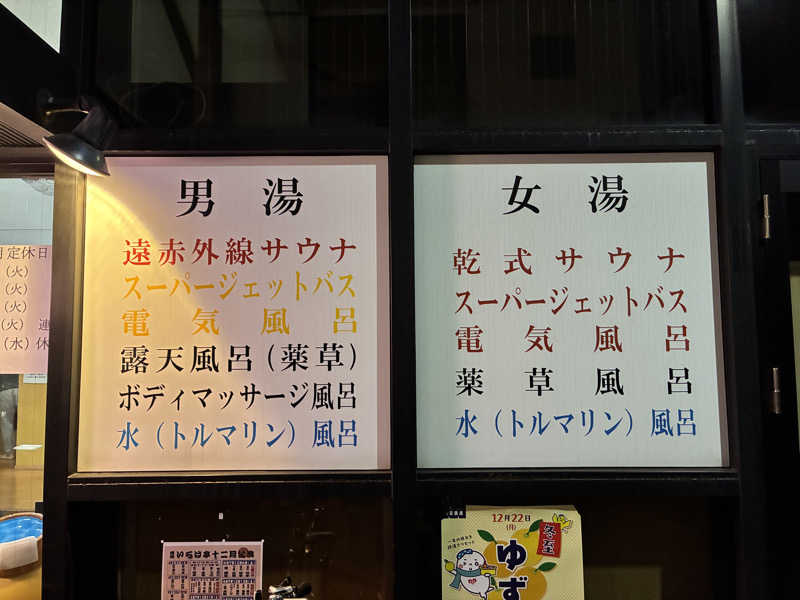 男湯
遠赤外線サウナ
スーパージェットバス
電気風呂
露天風呂(薬草)
ボディマッサージ風呂
水(トルマリン)風呂
女湯
乾式サウナ
スーパージェットバス
電気風呂
薬草風呂
水(トルマリン)風呂
定休日
(火)
(火)
(火)
(火) 連
(水)休
12月22日
(月)
冬至
ゆず